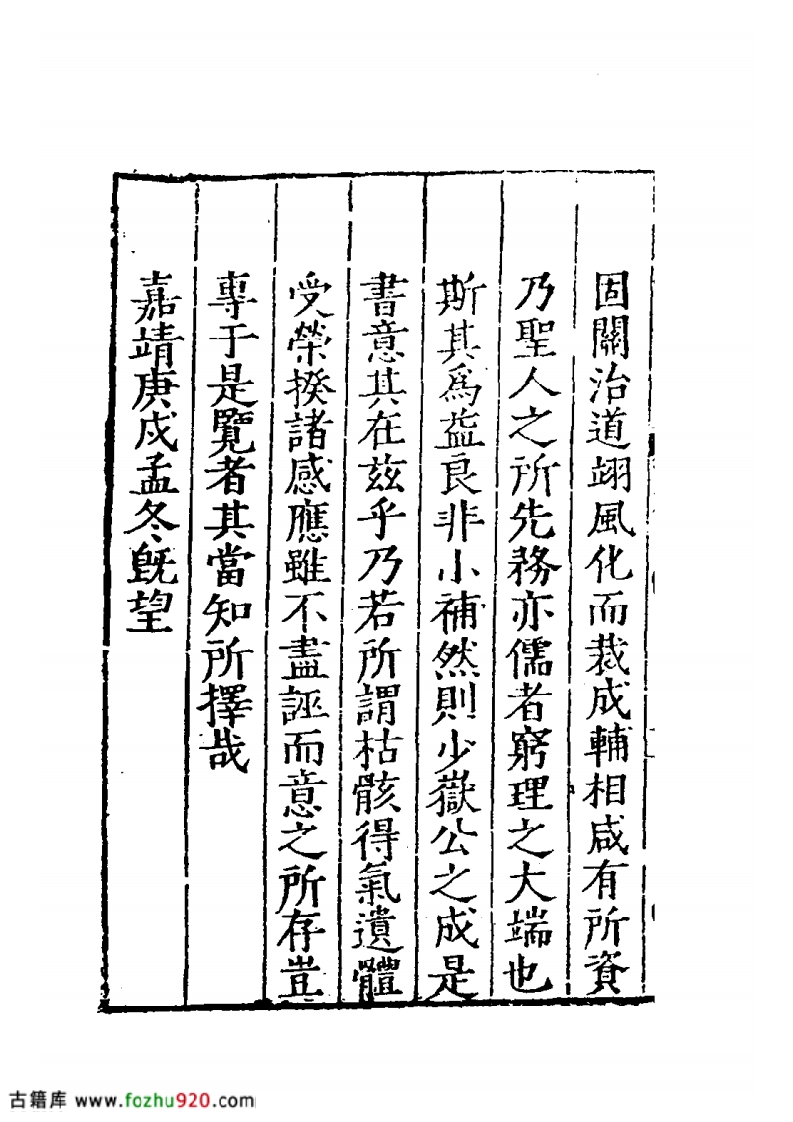 固關治道翊風化而裁成輔相咸有所資
乃聖人之所先務亦儒者窮理之大端也
斯其為益良非小補然則少嶽公之成是
書意其在茲乎乃若所謂枯骸得氣遺體
受榮揆諸感應雖不盡誣而意之所存豈
專于是覽者其當知所擇哉
嘉靖庚戌孟冬旣望
古籍库 www.fozhu920.com